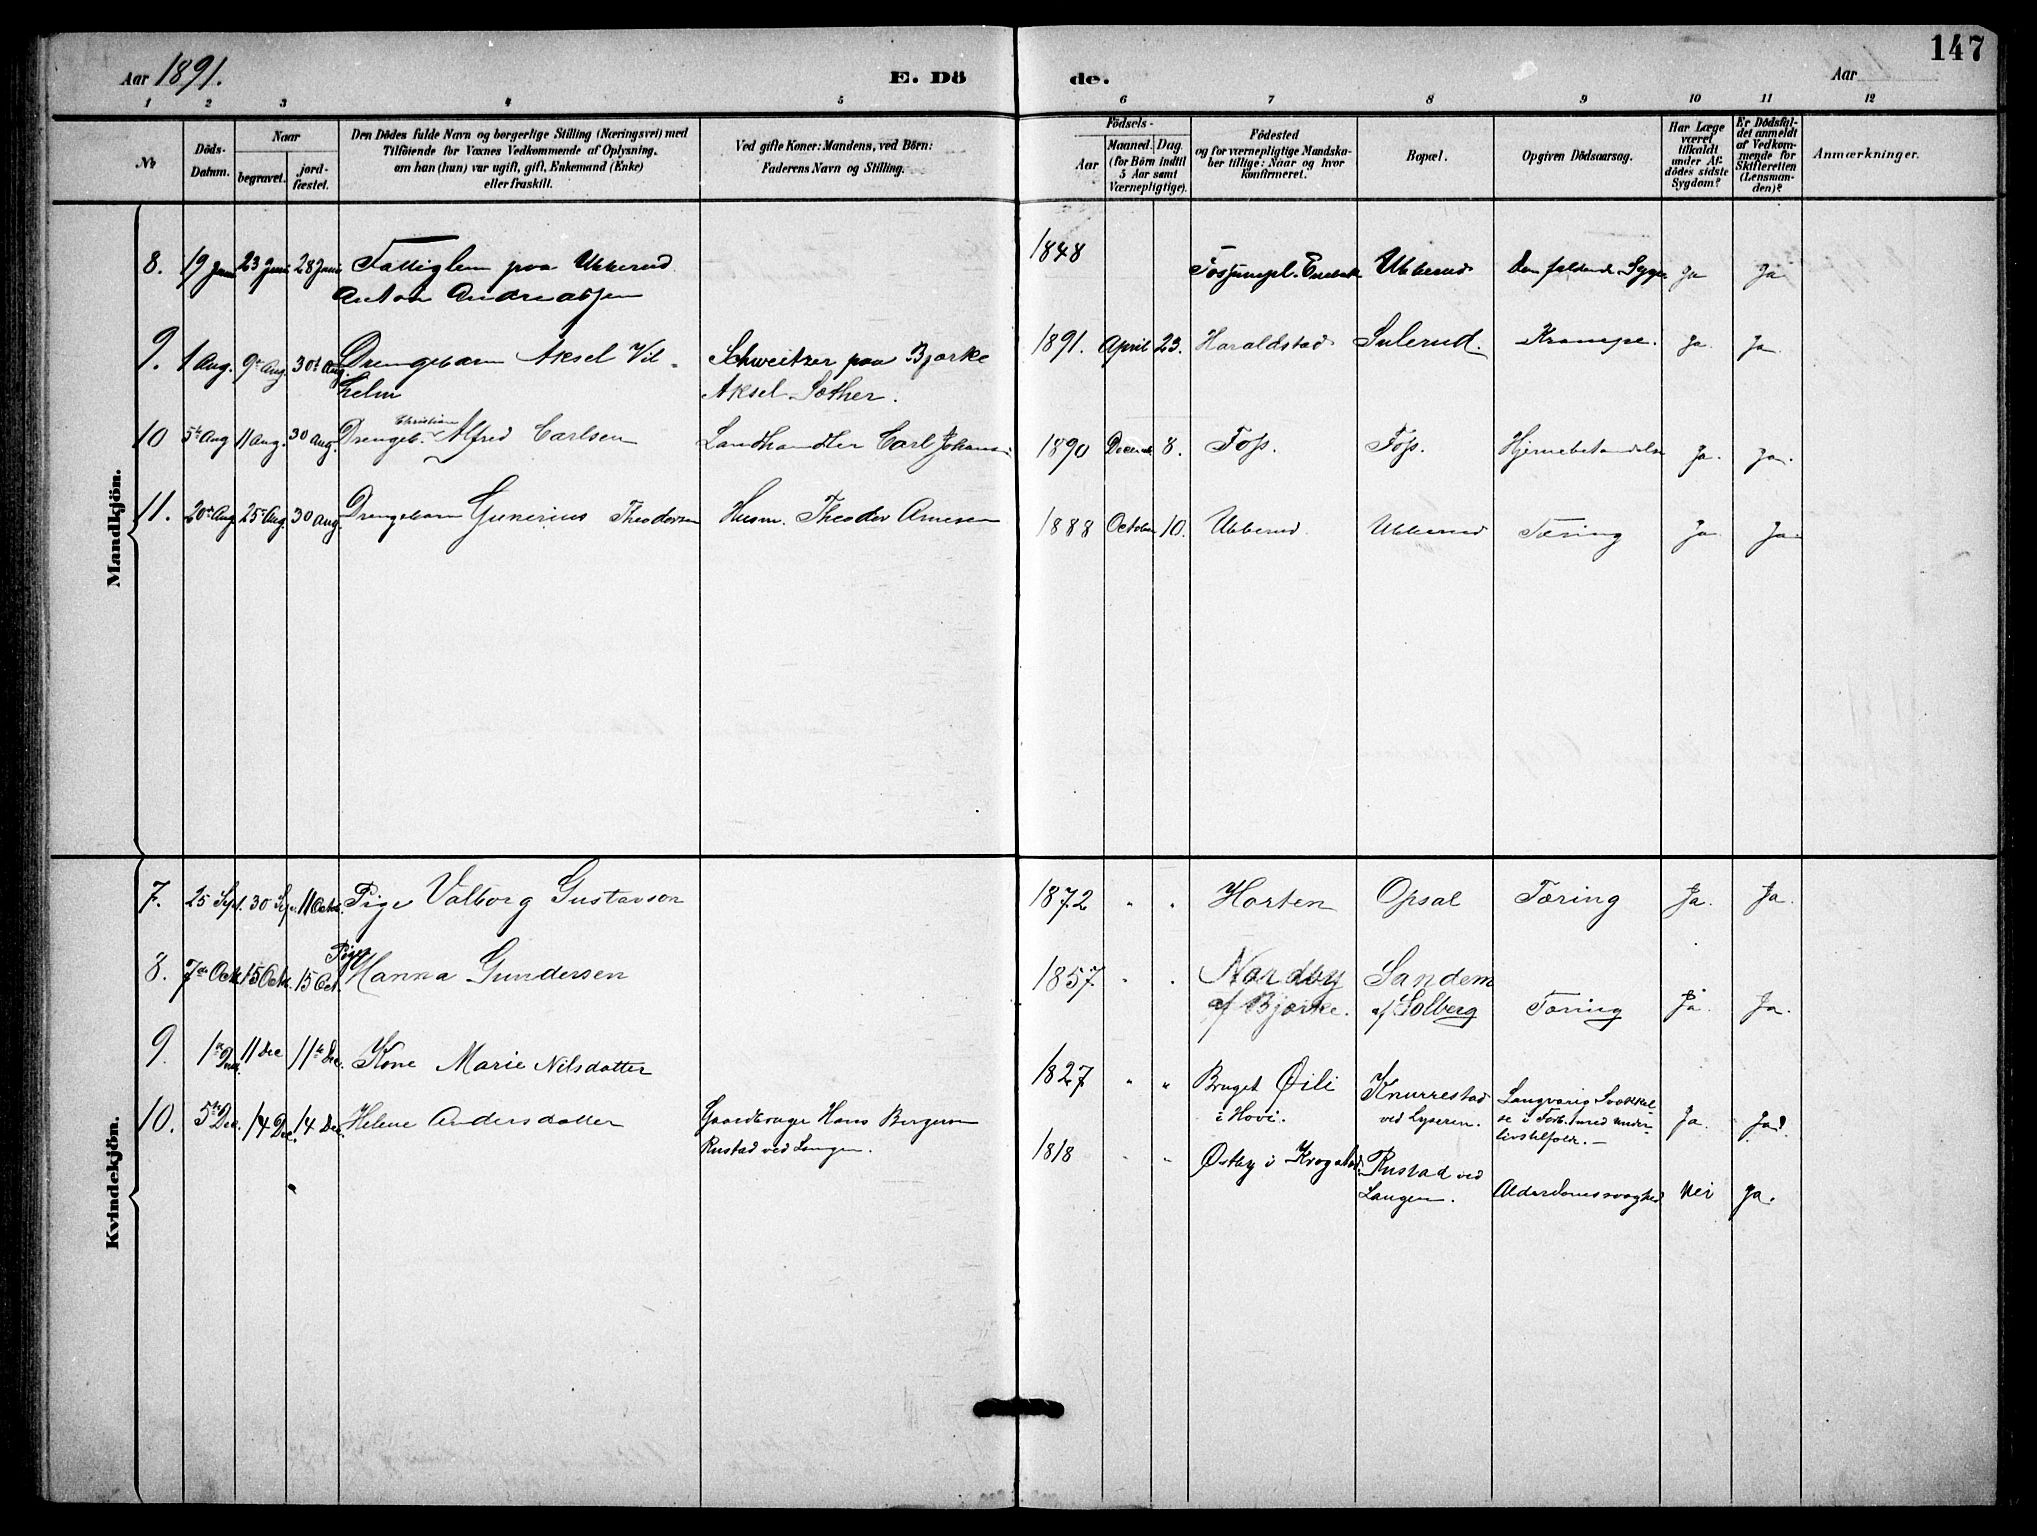 147
Aar 1891.
E. Dö de.
Aar
1 2 3 4 5 6 7 8 9 10 11 12
No
Döds-
Datum.
Naar
begravet.
jord-
fæstet.
Den Dödes fulde Navn og borgerlige Stilling (Næringsvei) med
Tilföiende for Voxnes Vedkommende af Oplysning,
om han (hun) var ugift, gift, Enkemand (Enke)
eller fraskilt.
Ved gifte Koner: Mandens, ved Börn:
Faderens Navn og Stilling.
Födsels-
Aar
Maaned. Dag
(for Börn indtil
5 Aar samt
Værnepligtige).
Födested
og for værnepligtige Mandska-
ber tillige: Naar og hvor
konfirmeret.
Bopæl.
Opgiven Dödsaarsag.
Har Læge
været
tilkaldt
under Af-
dödes sidste
Sygdom?
Er Dödsfal-
det anmeldt
af Vedkom-
mende for
Skifteretten
(Lensman-
den)?
Anmærkninger.
Mandkjön.
8. 19 Juni 23 Juni 28 Juni Fattiglem paa Ubberud 1848 Ubberud Den faldende Syge Ja Ja
Anton Andreassen
9. 1 Aug. 9de Aug. 30te Aug. Drengebarn Aksel Vil- Schweitzer paa Bjørke 1891. April 23. Haraldstad Sulerud. Krampe. Ja. Ja.
helm Aksel Sæther.
Christian
10 5te Aug 11 Aug. 30 Aug. Drengeb. Alfred Carlsen Landhandler Carl Johans: 1890 Decemb 8. Foss. Foss. Hjernebetændelse Ja. Ja.
11. 20de Aug 25de Aug. 30 Aug. Drengebarn Gunerius Theodorsen Husm. Theodor Arnesen 1888 October 10. Ubberud Ubberud Tæring Ja. Ja.
Kvindekjön.
7. 25 Sept. 30 Sep. 11 Octb. Pige Valborg Gustavson 1872 " " Horten Opsal Tæring Ja. Ja.
Pige
8. 7de Octb. 15 Octb. 15 Oct. Hanna Gundersen 1857 " " Nordby Sandem
af Bjørke. af Solberg Tæring Ja. Ja.
9. 1ste Decb. 11 Dec 11te Dec. Kone Marie Nilsdatter 1827 " " Bruget Øili Knurrestad Langvarig Svækkel-
i Hovi. ved Lyseren. se i Forb. med under-
livstilfælde.- Ja. Ja.
10. 5te Dec. 14 Dec. 14 Dec. Helene Andersdatter Gaardbruger Hans Bergersen 1818 " " Østby i Krogstad. Rustad ved
Rustad ved Langen. Langen. Alderdomssvaghed Nei Ja.